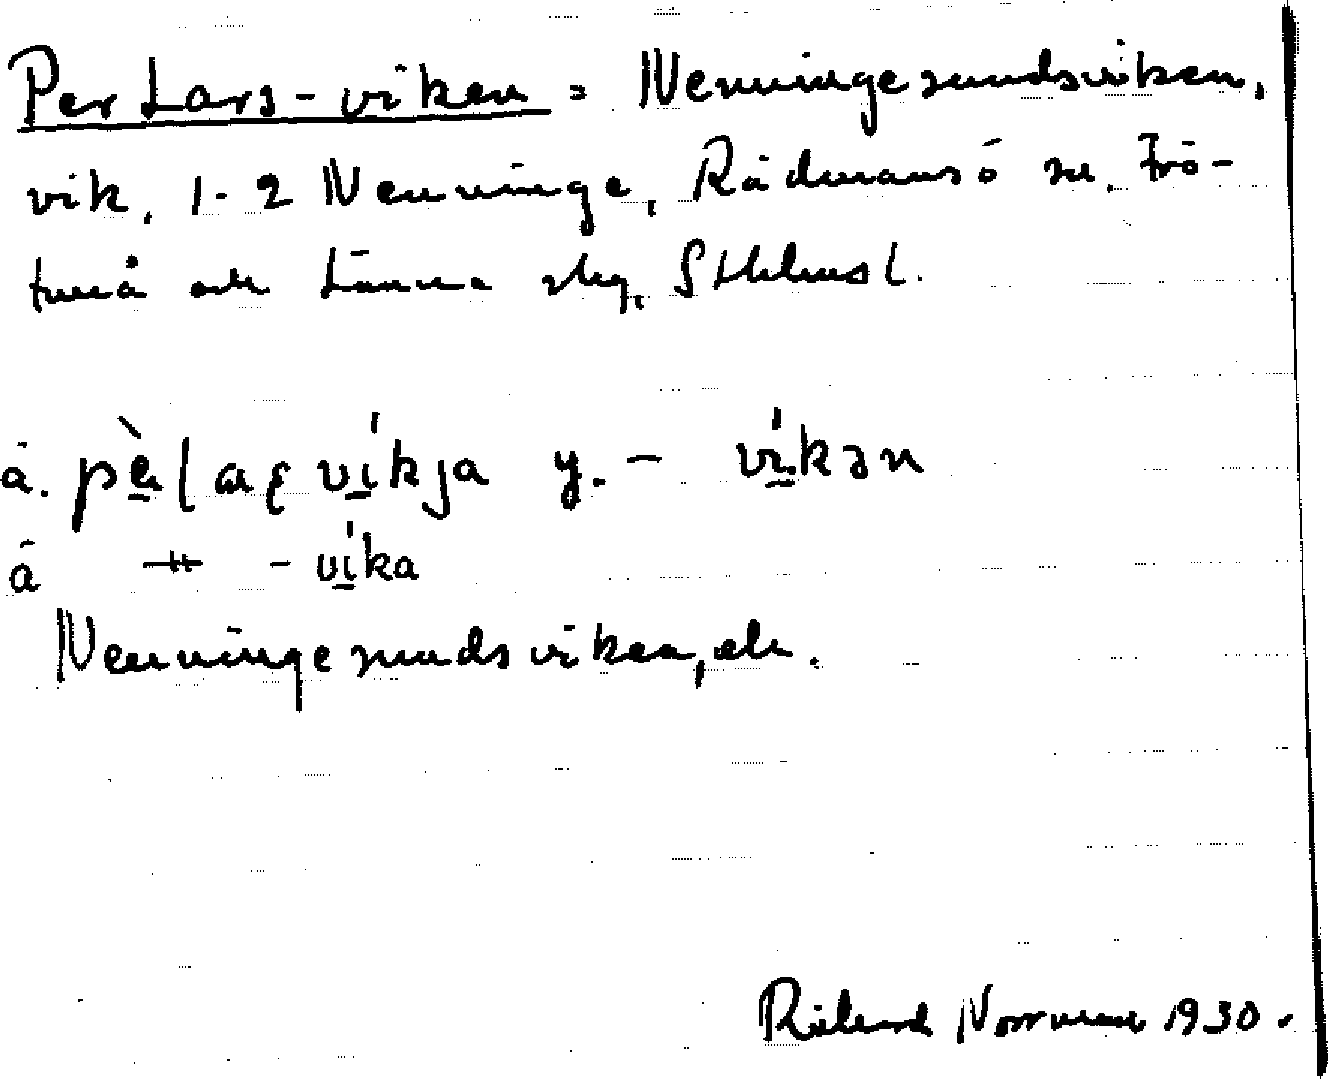 Per Lars-viken = Nenningesundsviken,
vik, 1-2 Nenninge, Rådmansö sn, Frö-
tuna och Länna skg, Sthlms l.
å. pèl aʂ víkja y. - víkən
å -"- - víka
Nenningesundsviken, ek.
Rickard Norrman 1930.